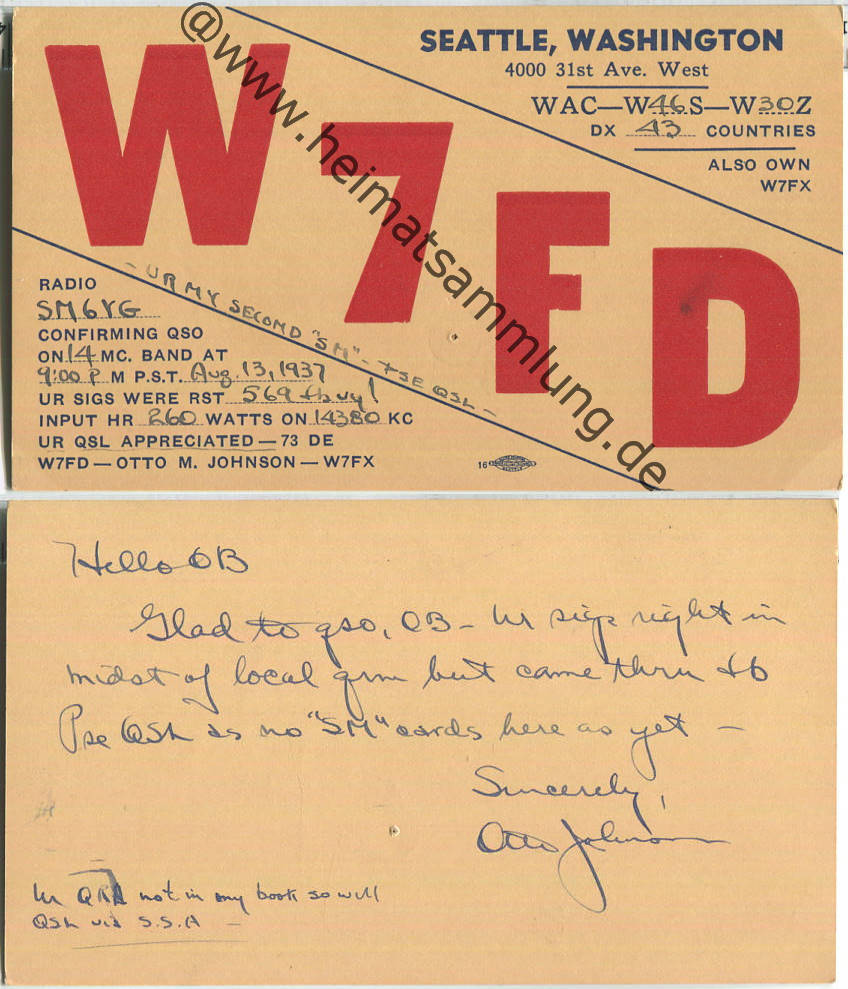 SEATTLE, WASHINGTON
4000 31st Ave. West
WAC—W46S—W30Z
DX 43 COUNTRIES
ALSO OWN
W7FX
W7FD
- UR MY SECOND "SM" - PSE QSL -
RADIO
SM6YG
CONFIRMING QSO
ON 14 MC. BAND AT
9:00 P M P.S.T. Aug. 13, 1937
UR SIGS WERE RST 569 fb vy!
INPUT HR 260 WATTS ON 14380 KC
UR QSL APPRECIATED—73 DE
W7FD—OTTO M. JOHNSON—W7FX
16
@www.heimatsammlung.de
Hello OB
Glad to qso, OB - Ur sigs right in
midst of local qrm but came thru fb
Pse QSL as no "SM" cards here as yet —
Sincerely,
Otto Johnson
Ur QRA not in my book so will
QSL via S.S.A —